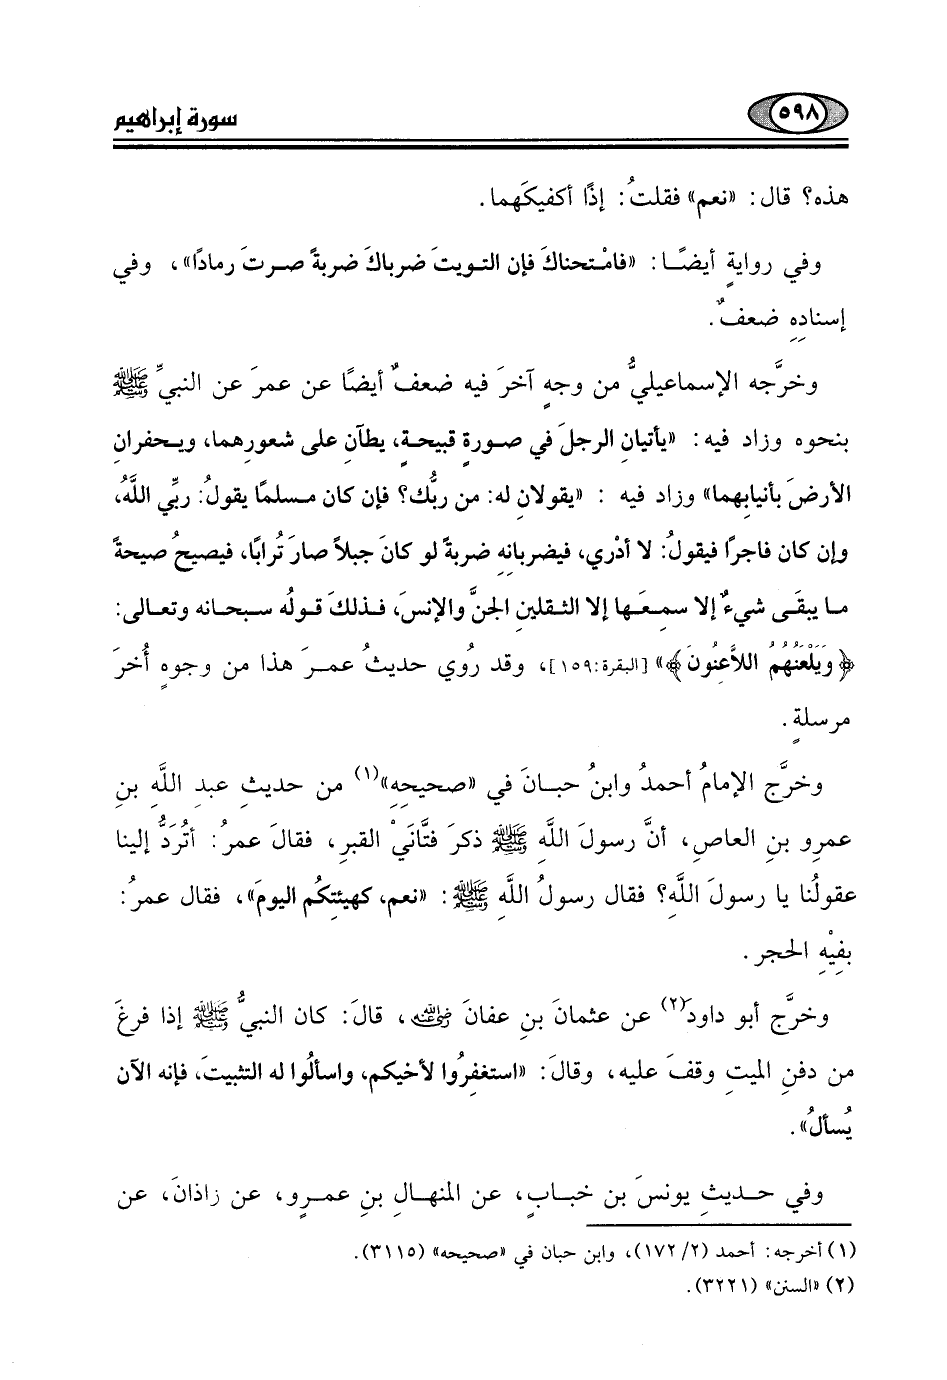 ٥٩٨ سورة إبراهيم
هذه؟ قال: «نعم» فقلتُ: إذًا أكفيكَهما.
وفي روايةٍ أيضًا: «فامْتحناكَ فإن التويتَ ضرباكَ ضربةً صرتَ رمادًا»، وفي
إسنادِهِ ضعفٌ.
وخرَّجه الإسماعيليُّ من وجهٍ آخرَ فيه ضعفٌ أيضًا عن عمرَ عن النبيِّ ﷺ
بنحوه وزاد فيه: «يأتيان الرجلَ في صورةٍ قبيحةٍ، يطآنِ على شعورِهما، ويحفرانِ
الأرضَ بأنيابِهما» وزاد فيه : «يقولانِ له: من ربُّك؟ فإن كان مسلمًا يقولُ: ربِّي اللَّهُ،
وإن كان فاجرًا فيقولُ: لا أدْري، فيضربانِهِ ضربةً لو كانَ جبلاً صارَ تُرابًا، فيصيحُ صيحةً
ما يبقَى شيءٌ إلا سمعَها إلا الثقلينِ الجنَّ والإنسَ، فذلكَ قولُه سبحانه وتعالى:
﴿وَيَلْعَنُهُمُ اللاَّعِنُونَ﴾» [البقرة:١٥٩]، وقد رُوي حديثُ عمرَ هذا من وجوهٍ أُخرَ
مرسلةٍ.
وخرَّج الإمامُ أحمدُ وابنُ حبانَ في «صحيحِهِ»(١) من حديثِ عبدِ اللَّهِ بنِ
عمرِو بنِ العاصِ، أنَّ رسولَ اللَّهِ ﷺ ذكرَ فتَّانَيْ القبرِ، فقالَ عمرُ: أتُرَدُّ إلينا
عقولُنا يا رسولَ اللَّهِ؟ فقال رسولُ اللَّهِ ﷺ: «نعم، كهيئتِكُم اليومَ»، فقال عمرُ:
بفِيْهِ الحجر.
وخرَّج أبو داودَ(٢) عن عثمانَ بنِ عفانَ رضي الله عنه، قالَ: كان النبيُّ ﷺ إذا فرغَ
من دفنِ الميتِ وقفَ عليه، وقالَ: «استغفِرُوا لأخيكم، واسألُوا له التثبيتَ، فإنه الآن
يُسألُ».
وفي حديثِ يونسَ بن خبابٍ، عن المنهالِ بنِ عمرٍو، عن زاذانَ، عن
(١) أخرجه: أحمد (٢/ ١٧٢)، وابن حبان في «صحيحه» (٣١١٥).
(٢) «السنن» (٣٢٢١).